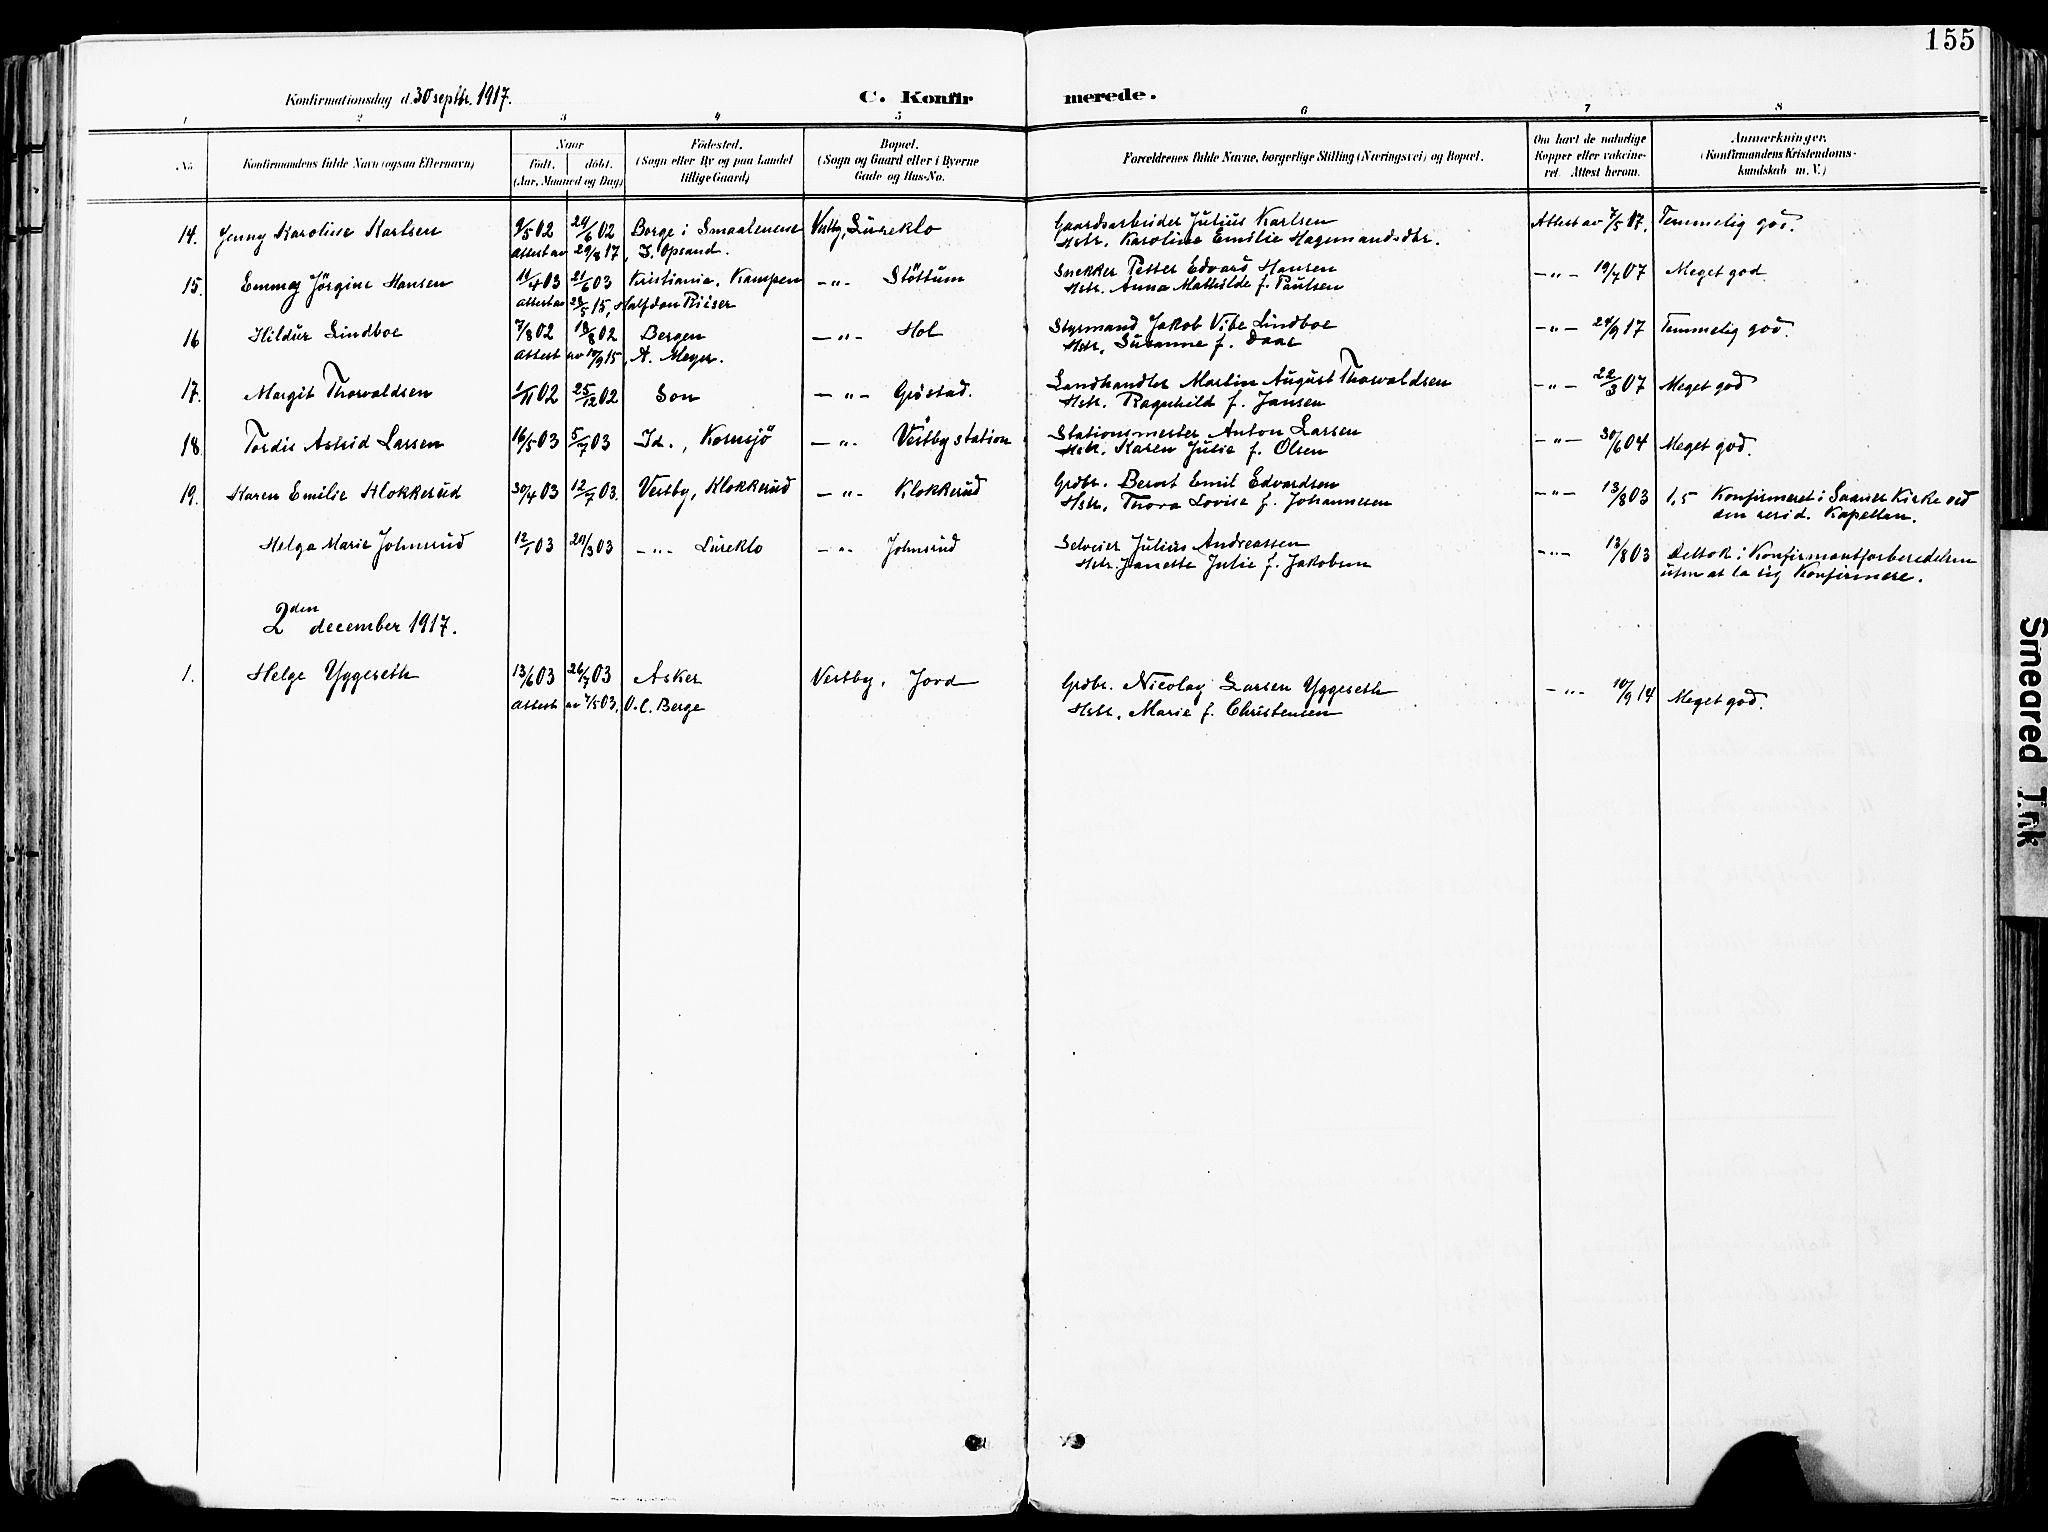 155
Konfirmationsdag d. 30 septbr. 1917.
C. Konfirmerede.
1 2 3 4 5 6 7 8
No.
Konfirmandens fulde Navn (ogsaa Efternavn)
Naar
født. døbt.
(Aar, Maaned og Dag)
Fødested.
(Sogn eller By og paa Landet
tillige Gaard)
Bopæl.
(Sogn og Gaard eller i Byerne
Gade og Hus-No.
Forældrenes fulde Navne, borgerlige Stilling (Næringsvei) og Bopæl.
Om havt de naturlige
Kopper eller vakcine-
ret. Attest herom.
Anmærkninger.
(Konfirmandens Kristendoms-
kundskab m. V.)
14. Jenny Karoline Karlsen 9/5 02 29/6 02 Borge i Smaalenene Vestby, Sureklo Gaardsarbeider Julius Karlsen Attest av 7/5 17. Temmelig god.
attest av 29/8 17, I. Opsand. Hstr. Karoline Emilie Hagemandsdtr.
15. Emmy Jörgine Hansen 11/4 03 21/6 03 Kristiania, Kampen —„— Støttum Snekker Petter Edvard Hansen —„— 19/7 07 Meget god
attest av 28/5 15, Halfdan Riiser Hstr. Anna Mathilde f. Paulsen
16 Hildur Lindboe 7/8 02 18/8 02 Bergen —„— Hol Styrmand Jakob Vibe Lindboe —„— 24/9 17 Temmelig god.
attest av 17/9 15, A. Meyer. Hstr. Susanne f. Daae
17. Margit Thorvaldsen 1/11 02 25/12 02 Son —„— Grøstad. Landhandler Martin August Thorvaldsen —„— 22/3 07 Meget god
Hstr. Ragnhild f. Jansen
18. Tordis Astrid Larsen 16/5 03 5/7 03 Id., Kornsjö —„— Vestby station Stationsmester Anton Larsen —„— 30/6 04 Meget god.
Hstr. Karen Julie f. Olsen
19. Karen Emilie Klokkerud 30/4 03 12/7 03. Vestby, Klokkerud —„— Klokkerud Grdbr. Bernt Emil Edvardsen —„— 13/8 03 1,5 Konfirmeret i Saaner Kirke ved
Hstr. Thora Lovise f. Johannesen den resid. Kapellan.
Helga Marie Johnsrud 12/1 03 29/3 03 —„— Sureklo —„— Johnsrud Selveier Julius Andreassen —„— 13/8 03 Deltok i Konfirmantforberedelsen
Hstr. Janette Julie f. Jakobsen uten at la sig Konfirmere.
2den december 1917.
1. Helge Yggeseth 13/6 03 26/7 03 Asker Vestby, Jord Grdbr. Nicolay Larsen Yggeseth —„— 10/9 14 Meget god.
attest av 7/5 03, O. C. Berge Hstr. Marie f. Christensen
Smeared Ink